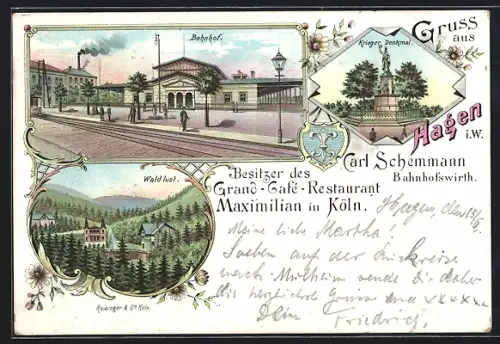 Bahnhof.
Krieger Denkmal.
Gruss
aus
Hagen
i.W.
Carl Schemmann
Bahnhofswirth.
Besitzer des
Grand-Café-Restaurant
Maximilian in Köln.
Waldlust.
Reisinger & Co Köln.
Hagen, den 15/
Meine liebe Martha!
Soeben auf der Rückreise
nach sende Dir daher
die herzlichste Grüsse und xxxxx
Dein
Friedrich.